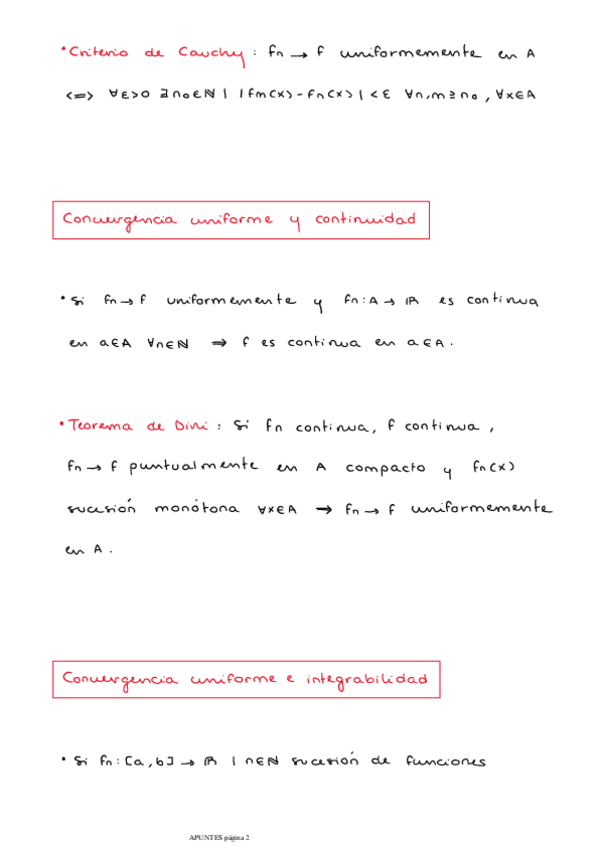 • Criterio de Cauchy : fn → f uniformemente en A
<=> ∀ε>0 ∃n₀∈ℕ | |fm(x) - fn(x)| < ε ∀n,m ≥ n₀ , ∀x∈A
Convergencia uniforme y continuidad
• Si fn → f uniformemente y fn : A → ℝ es continua
en a∈A ∀n∈ℕ ⇒ f es continua en a∈A.
• Teorema de Dini : Si fn continua, f continua ,
fn → f puntualmente en A compacto y fn(x)
sucesión monótona ∀x∈A → fn → f uniformemente
en A.
Convergencia uniforme e integrabilidad
• Si fn : [a,b] → ℝ | n∈ℕ sucesión de funciones
APUNTES página 2